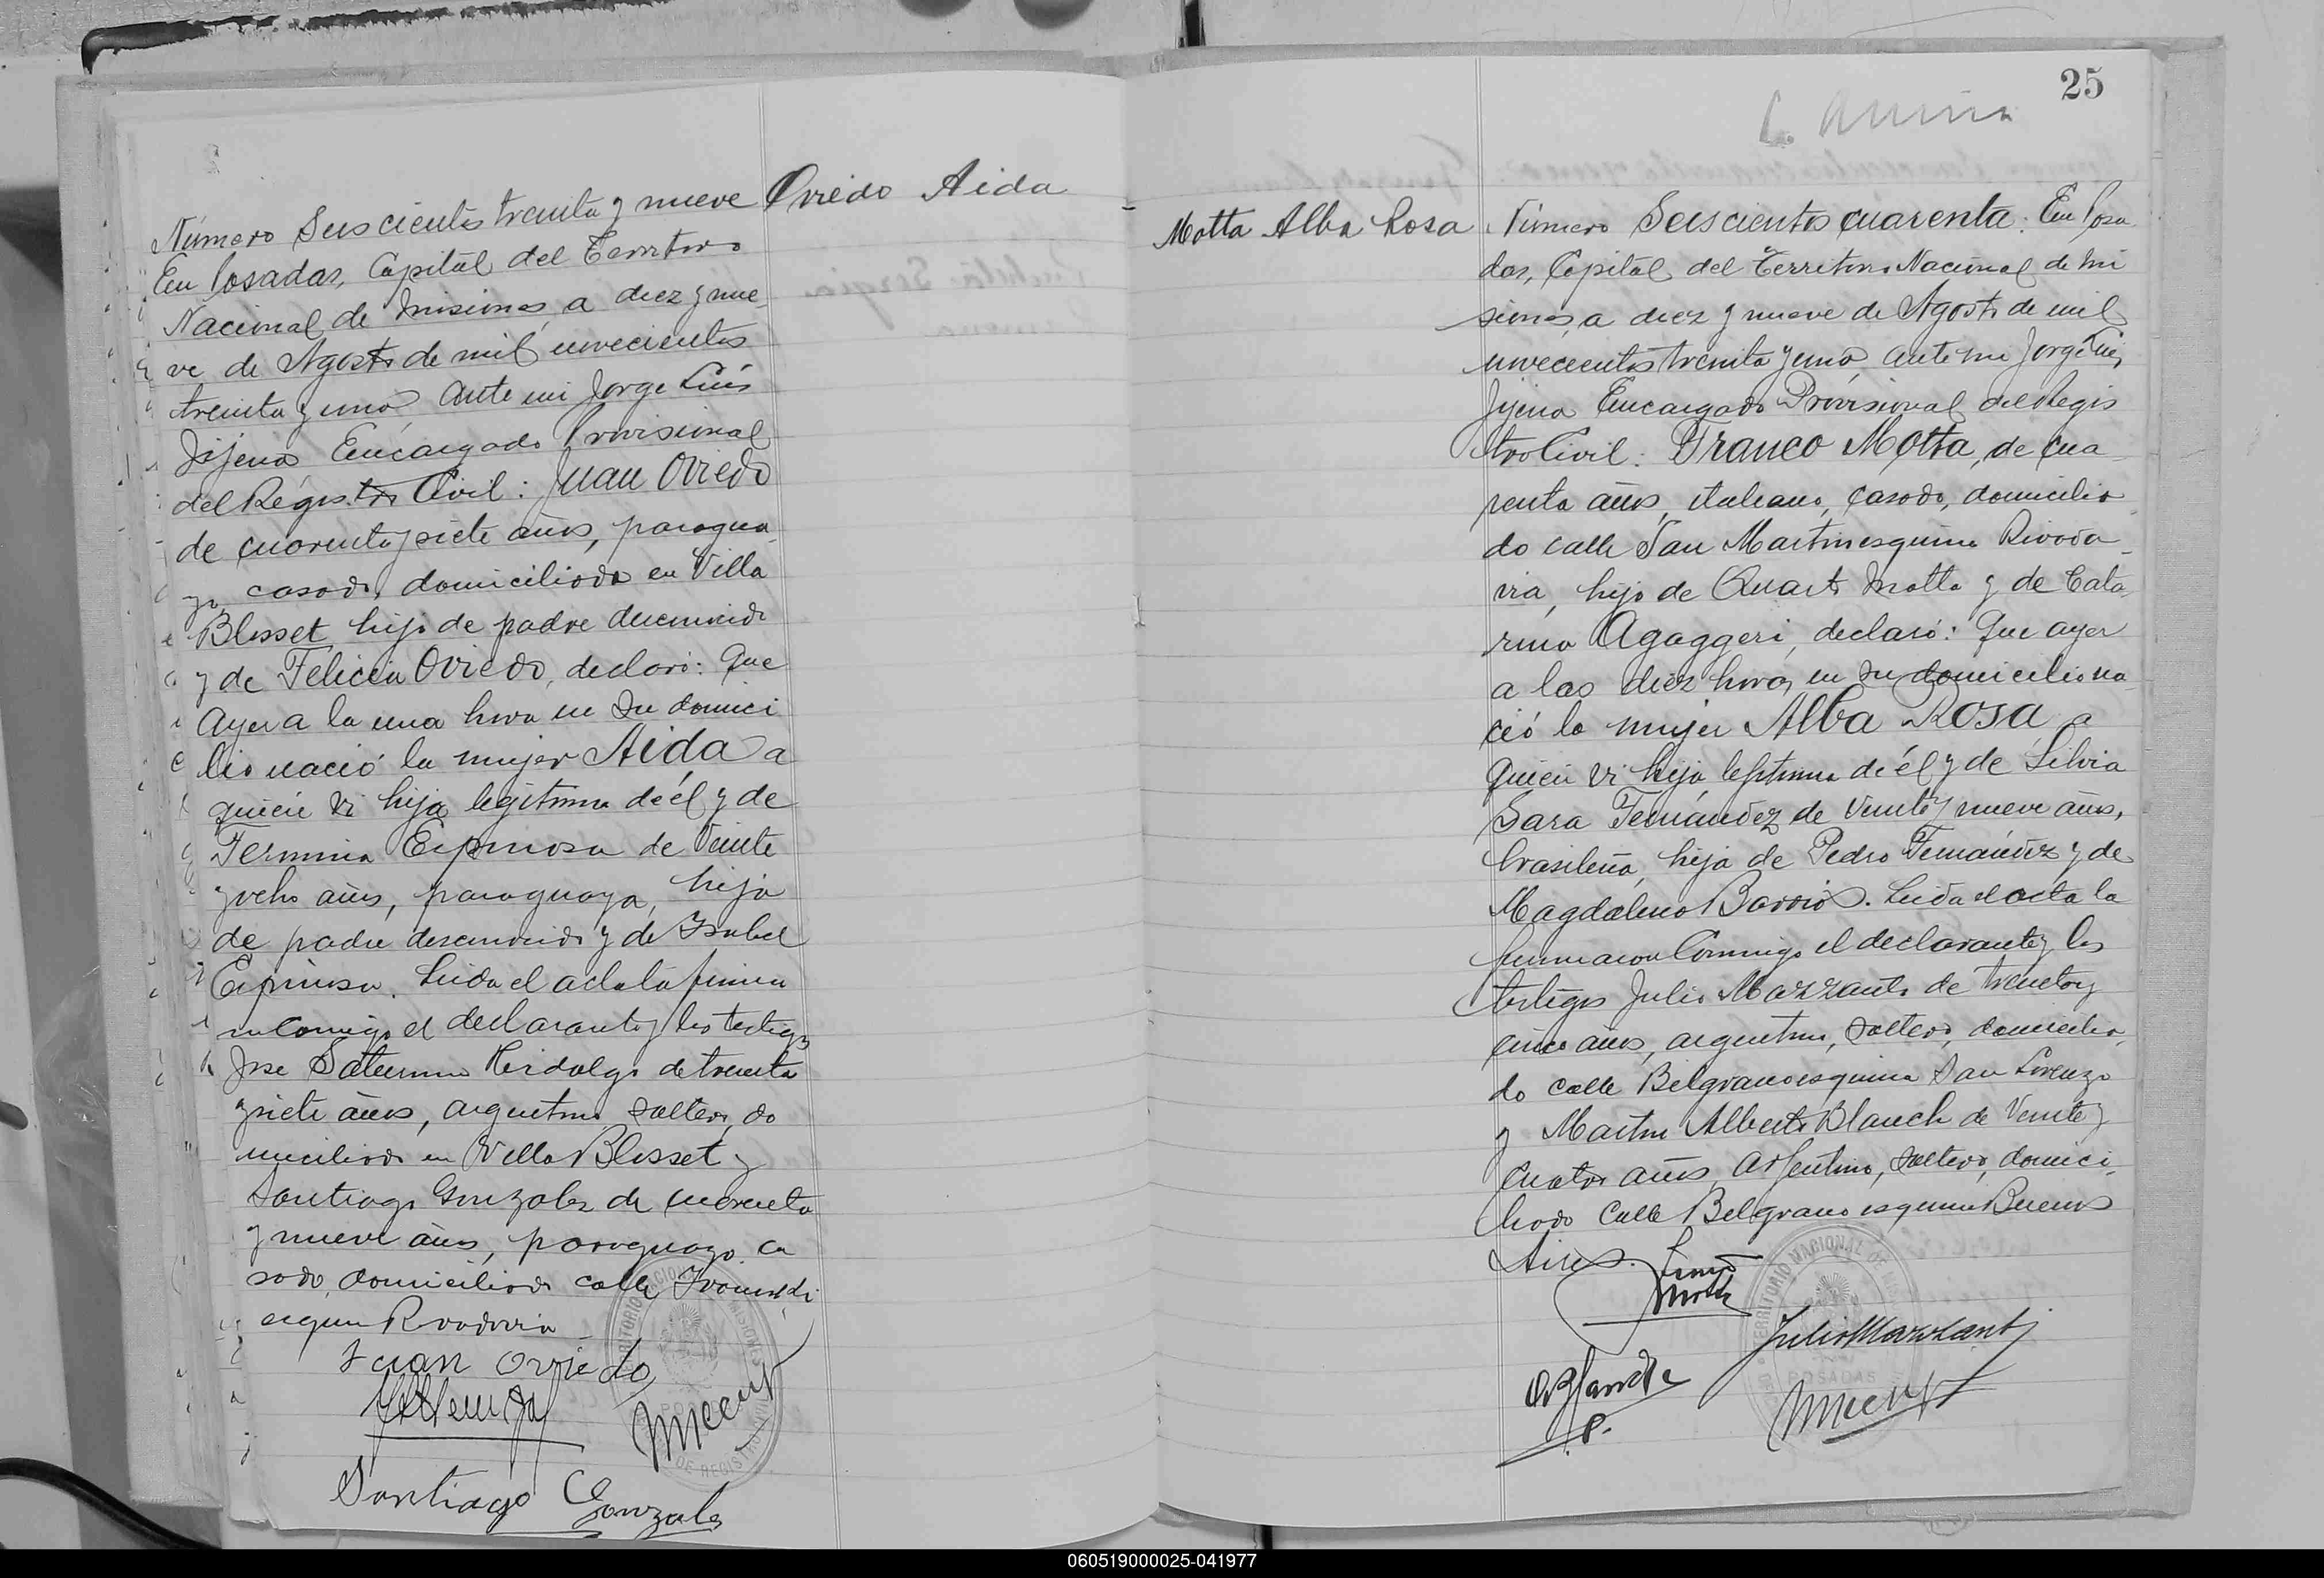 Número Seiscientos treinta y nueve
Oviedo Aida
En Posadas, Capital del Territorio
Nacional de Misiones, a diez y nue-
ve de Agosto de mil novecientos
treinta y uno, ante mi Jorge Luis
Jijena Encargado Provisional
del Registro Civil: Juan Oviedo
de cuarenta y siete años, paragua-
yo, casado, domiciliado en Villa
Blosset, hijo de padre desconocido
y de Felicia Oviedo, declaró: Que
ayer a la una hora en su domici
lio nació la mujer Aida a
quien vi hija legitima de él y de
Fermina Espinosa de veinte
y ocho años, paraguaya, hija
de padre desconocido y de Isabel
Espinosa. Leida el acta la firma
ron conmigo el declarante y los testigos
Jose Saturnino Hidalgo de treinta
y siete años, argentino soltero, do
miciliado en Villa Blosset y
Santiago Gonzalez de cuarenta
y nueve años, paraguayo ca
sado, domiciliado calle
esquina Rivadavia
Juan Oviedo
Santiago Gonzales
25
Motta Alba Rosa
Número Seiscientos cuarenta: En Posa
das, Capital del Territorio Nacional de Mi
siones, a diez y nueve de Agosto de mil
novecientos treinta y uno, ante mi Jorge Luis
Jijena Encargado Provisional del Regis
tro Civil: Franco Motta, de cua
renta años, italiano, casado, domicilia
do calle San Martin esquina Rivada-
via, hijo de Quarto Motta y de Cata
rina Agaggeri, declaró: Que ayer
a las diez horas en su domicilio na
ció la mujer Alba Rosa a
quien vi hija legitima de él y de Silvia
Sara Fernández de veinte y nueve años,
brasileña, hija de Pedro Fernández y de
Magdalena Barrios. Leida el acta la
firmaron conmigo el declarante y los
testigos Julio Mazzanti de treinta y
cinco años, argentino, soltero, domicilia-
do calle Belgrano esquina San Lorenzo
y Martin Alberto Blanch de veinte y
cuatro años, argentino, soltero, domici-
liado calle Belgrano esquina Buenos
Aires.
Julio Mazzanti
POSADAS
060519000025-041977